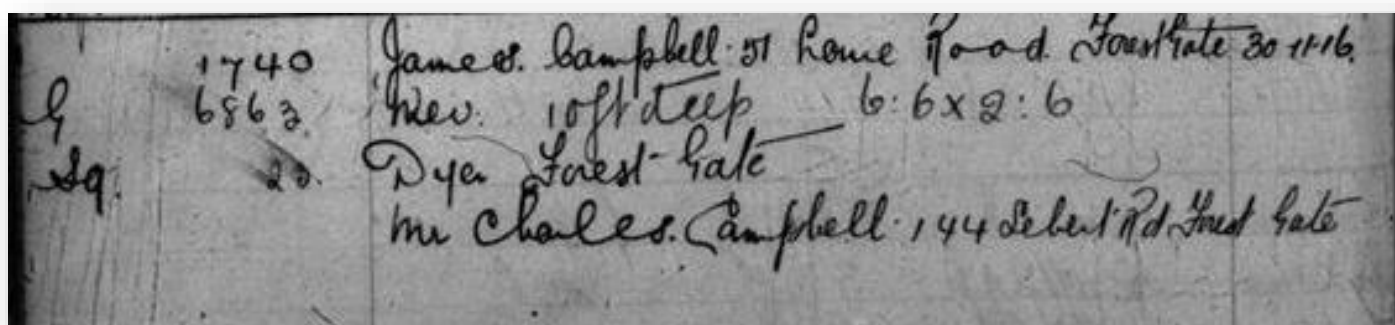 1740 James. Campbell. 51 Lorne Road. Forest Gate 30-11-16.
G 6863 New. 10ft deep 6:6 x 2:6
Sq. 23. Dyer Forest Gate
Mr Charles. Campbell. 144 Sebert Rd Forest Gate